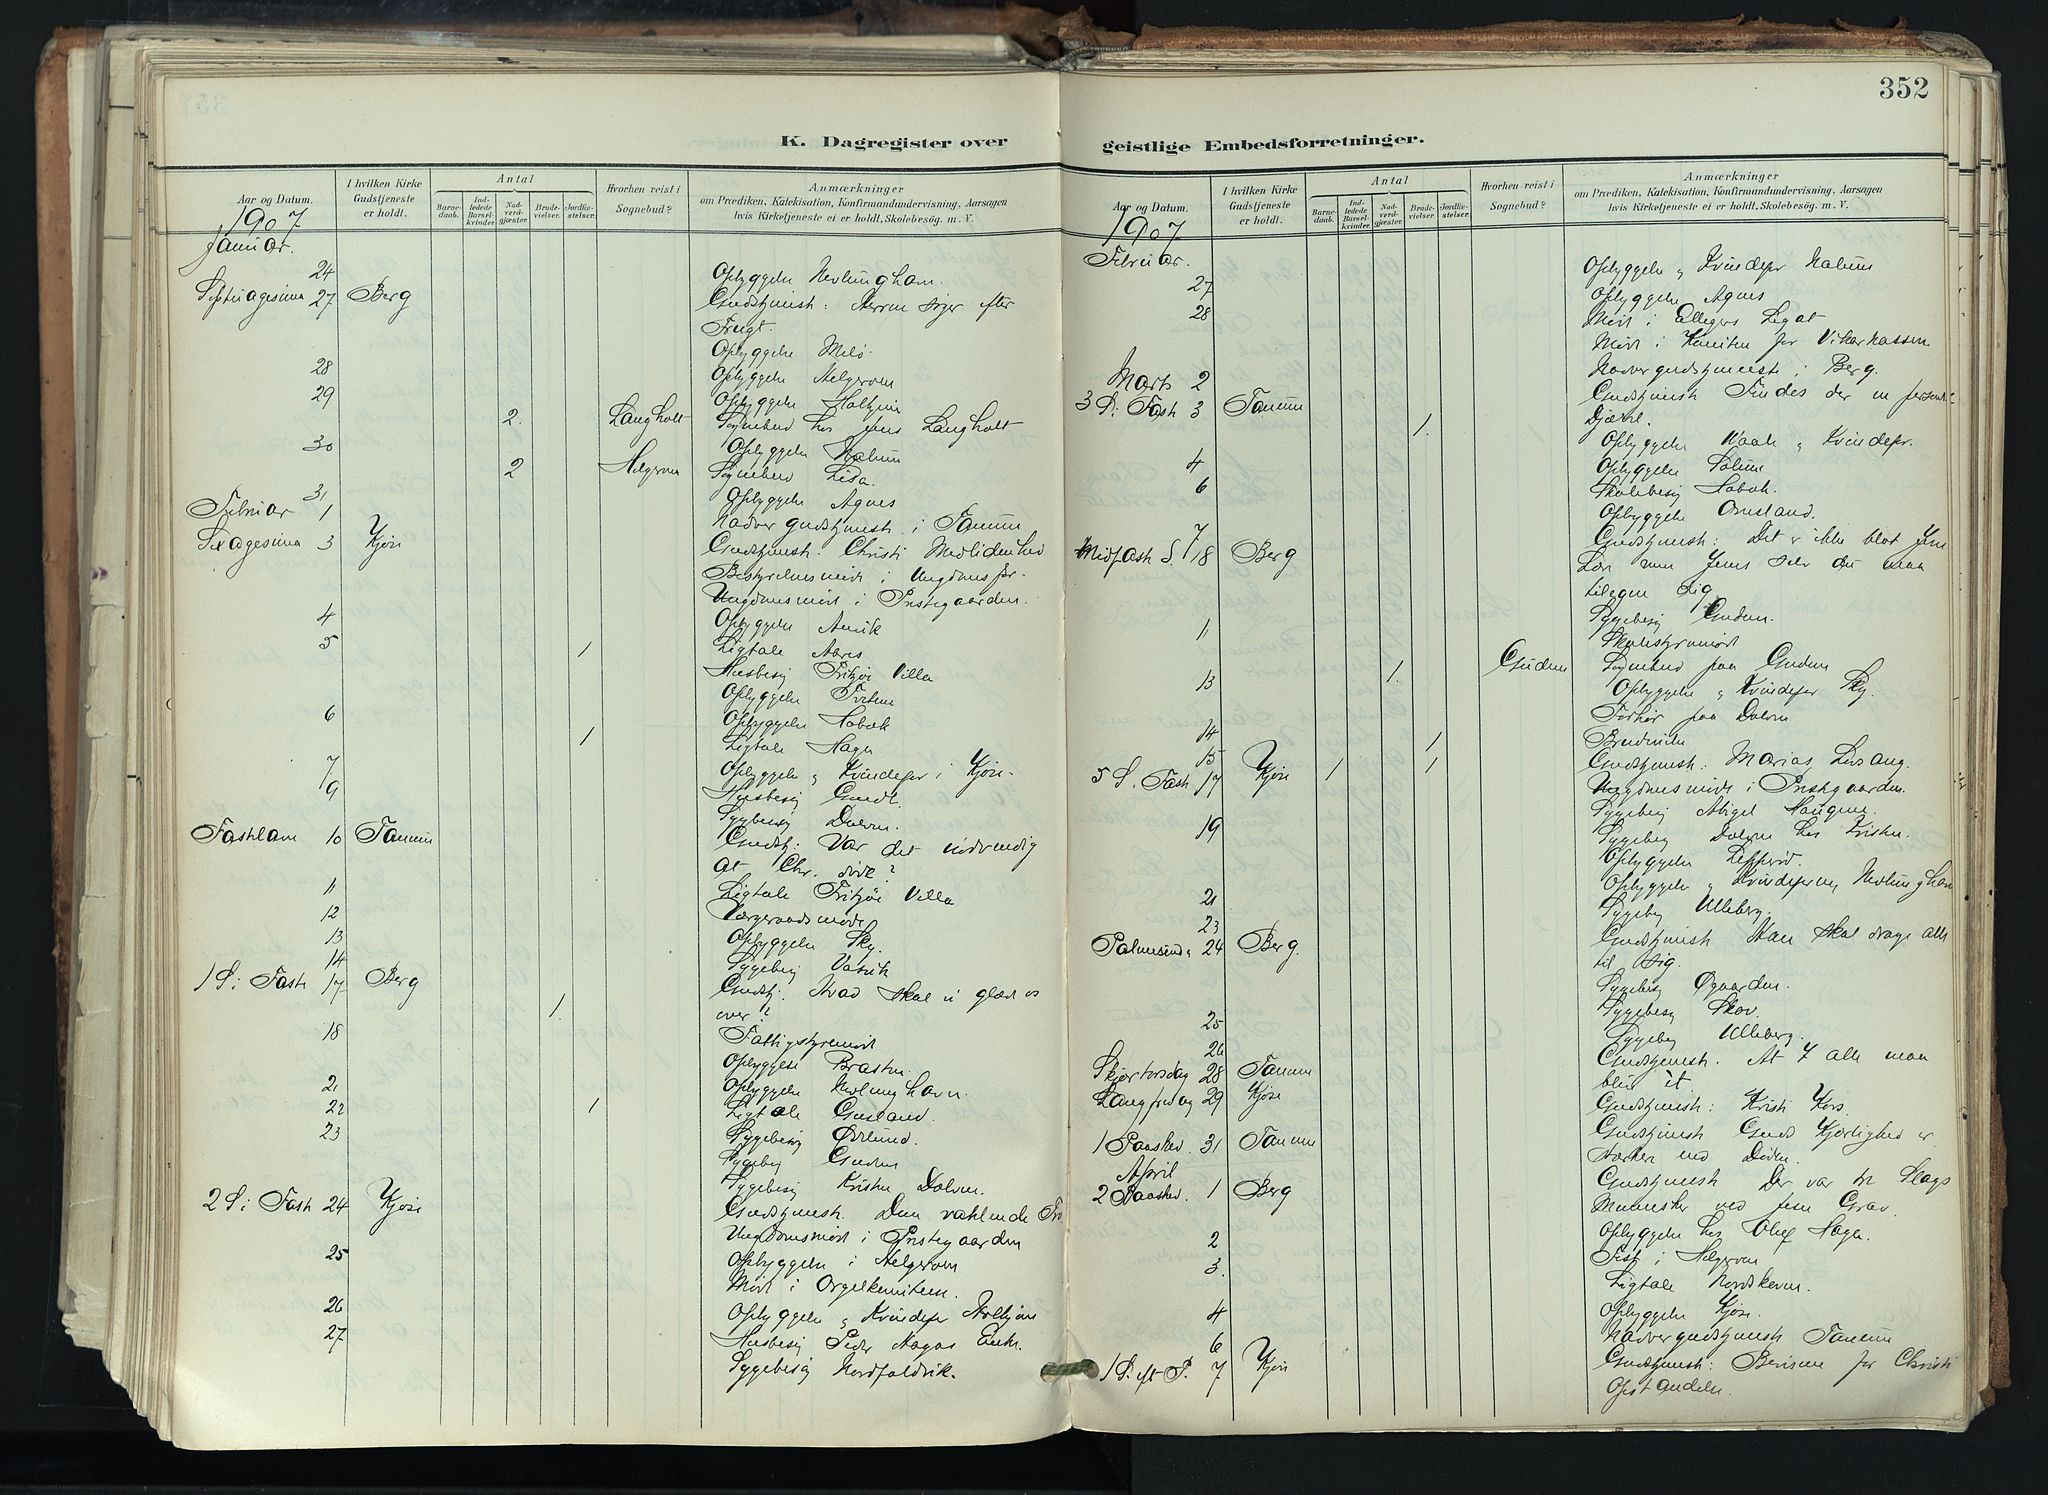 352
K. Dagregister over
geistlige Embedsforretninger.
Aar og Datum.
I hvilken Kirke Gudstjeneste er holdt.
Antal
Barnedaab.
Indledede Barselkvinder.
Nadverdgjæster.
Brudevielser.
Jordfæstelser.
Hvorhen reist i Sognebud?
Anmærkninger
om Prædiken, Katekisation, Konfirmandundervisning, Aarsagen
hvis Kirketjeneste ei er holdt, Skolebesøg. m. V.
1907
Januar.
24 Opbyggelse Nevlunghavn.
Septuagesima 27 Berg Gudstjenest: Herren siger efter
Frugt.
Opbyggelse Melø.
28 Opbyggelse Helgeroen
29 Opbyggelse
2. Langholt Sognebud hos Jens Langholt
30 Opbyggelse Nalum
2 Helgeroen Sognebud Lisa.
31 Opbyggelse Agnes
Februar 1 Nadvergudstjenest i Tanum
Sexagesima 3 Kjose Gudstjenest: Christi Medlidenhed
Bestyrelsesmøde i Ungdomsfor-
Ungdomsmøde i Prestegaarden.
4 Opbyggelse
5 1 Ligtale
Husbesøg Fritzøe Villa
Opbyggelse
6 Opbyggelse Haback
1 Ligtale Hagen
7 Opbyggelse og Kvindefor i Kjose.
9 Husbesøg
Sygebesøg Dolven.
Fastelavn 10 Tanum Gudstj: Var det nødvendig
at Chr. døde?
11 Ligtale Fritzøe Villa
12 Værgeraadsmøde
13 Opbyggelse Sky.
14 Sygebesøg Vasvik
1 S. i Faste 17 Berg 1. Gudstj. Hvad skal vi glæde os
over?
18 Fattigstyremøde
Opbyggelse Brastein.
21 Opbyggelse Nevlunghavn.
22 1 Ligtale Gusland.
23 Sygebesøg Østlund.
Sygebesøg Gudem
Sygebesøg Kristen Dolven.
2 S. i Faste 24 Kjose Gudstjenest. Den vaklende Tro
Ungdomsmøde i Prestegaarden
25 Opbyggelse i Helgeroen
Møde i Orgelkomiteen.
26 Opbyggelse og Kvindefor
27 Husbesøg Peder Enke.
Sygebesøg Nordfoldvik.
Aar og Datum.
I hvilken Kirke Gudstjeneste er holdt.
Antal
Barnedaab.
Indledede Barselkvinder.
Nadverdgjæster.
Brudevielser.
Jordfæstelser.
Hvorhen reist i Sognebud?
Anmærkninger
om Prædiken, Katekisation, Konfirmandundervisning, Aarsagen
hvis Kirketjeneste ei er holdt, Skolebesøg. m. V.
1907
Februar.
Opbyggelse og Kvindefor Nalum
27 Opbyggelse Agnes
28 Møde i Ellegers Legat
Møde i Komiteen for Vikarkassen
Marts 2 Nadvergudstjeneste i Berg.
3 S. i Faste 3 Tanum Gudstjenest Findes der en personl-
1. Djævel.
Opbyggelse og Kvindefor.
4 Opbyggelse Solum
6 Skolebesøg Haback.
7 Opbyggelse Omsland.
Midfaste S. 10 Berg Gudstjenest: Det er ikke blot Jesu
Lære men Jesus selv du maa
tilegne dig.
Sygebesøg Gudem.
11 Skolestyremøde
1. Gudem Sognebud paa Gudem
13 Opbyggelse og Kvindefor Sky.
Forhør paa Dolven
14 1 Brudevielse
15
5 S. Faste 17 Kjose 1 1 Gudstjenest. Marias Lovsang.
Ungdomsmøde i Prestegaarden.
Sygebesøg Abigel Haugene
19 Sygebesøg Dolven hos Kristen.
Opbyggelse
Opbyggelse og Kvindeforening Nevlunghavn
21 Sygebesøg Ulleberg.
23
Palmesønda 24 Berg. Gudstjenest Han skal drage alle
til sig.
Sygebesøg Øgaarden.
Sygebesøg Skov.
25
26 Sygebesøg Ulleberg.
Skjærtorsdag 28 Tanum Gudstjenest. At I alle maa
blive ét.
Langfredag 29 Kjose Gudstjenest: Kristi Kors.
1 Paasked 31 Tanum Gudstjenest Guds Kjærlighed er
stærkere end Døden.
April
2 Paasked. 1 Berg Gudstjenest Der var tre Slags
Mennesker ved Jesu Grav.
2 Opbyggelse hos Olaf Hagen.
3. Fest i Helgeroen
Ligtale Nordskoven.
4 Opbyggelse Kjose.
6 Nadvergudstjenest Tanum
1 S. eft P. 7 Kjose Gudstjenest: Beviserne for Christi
Opstandelse.